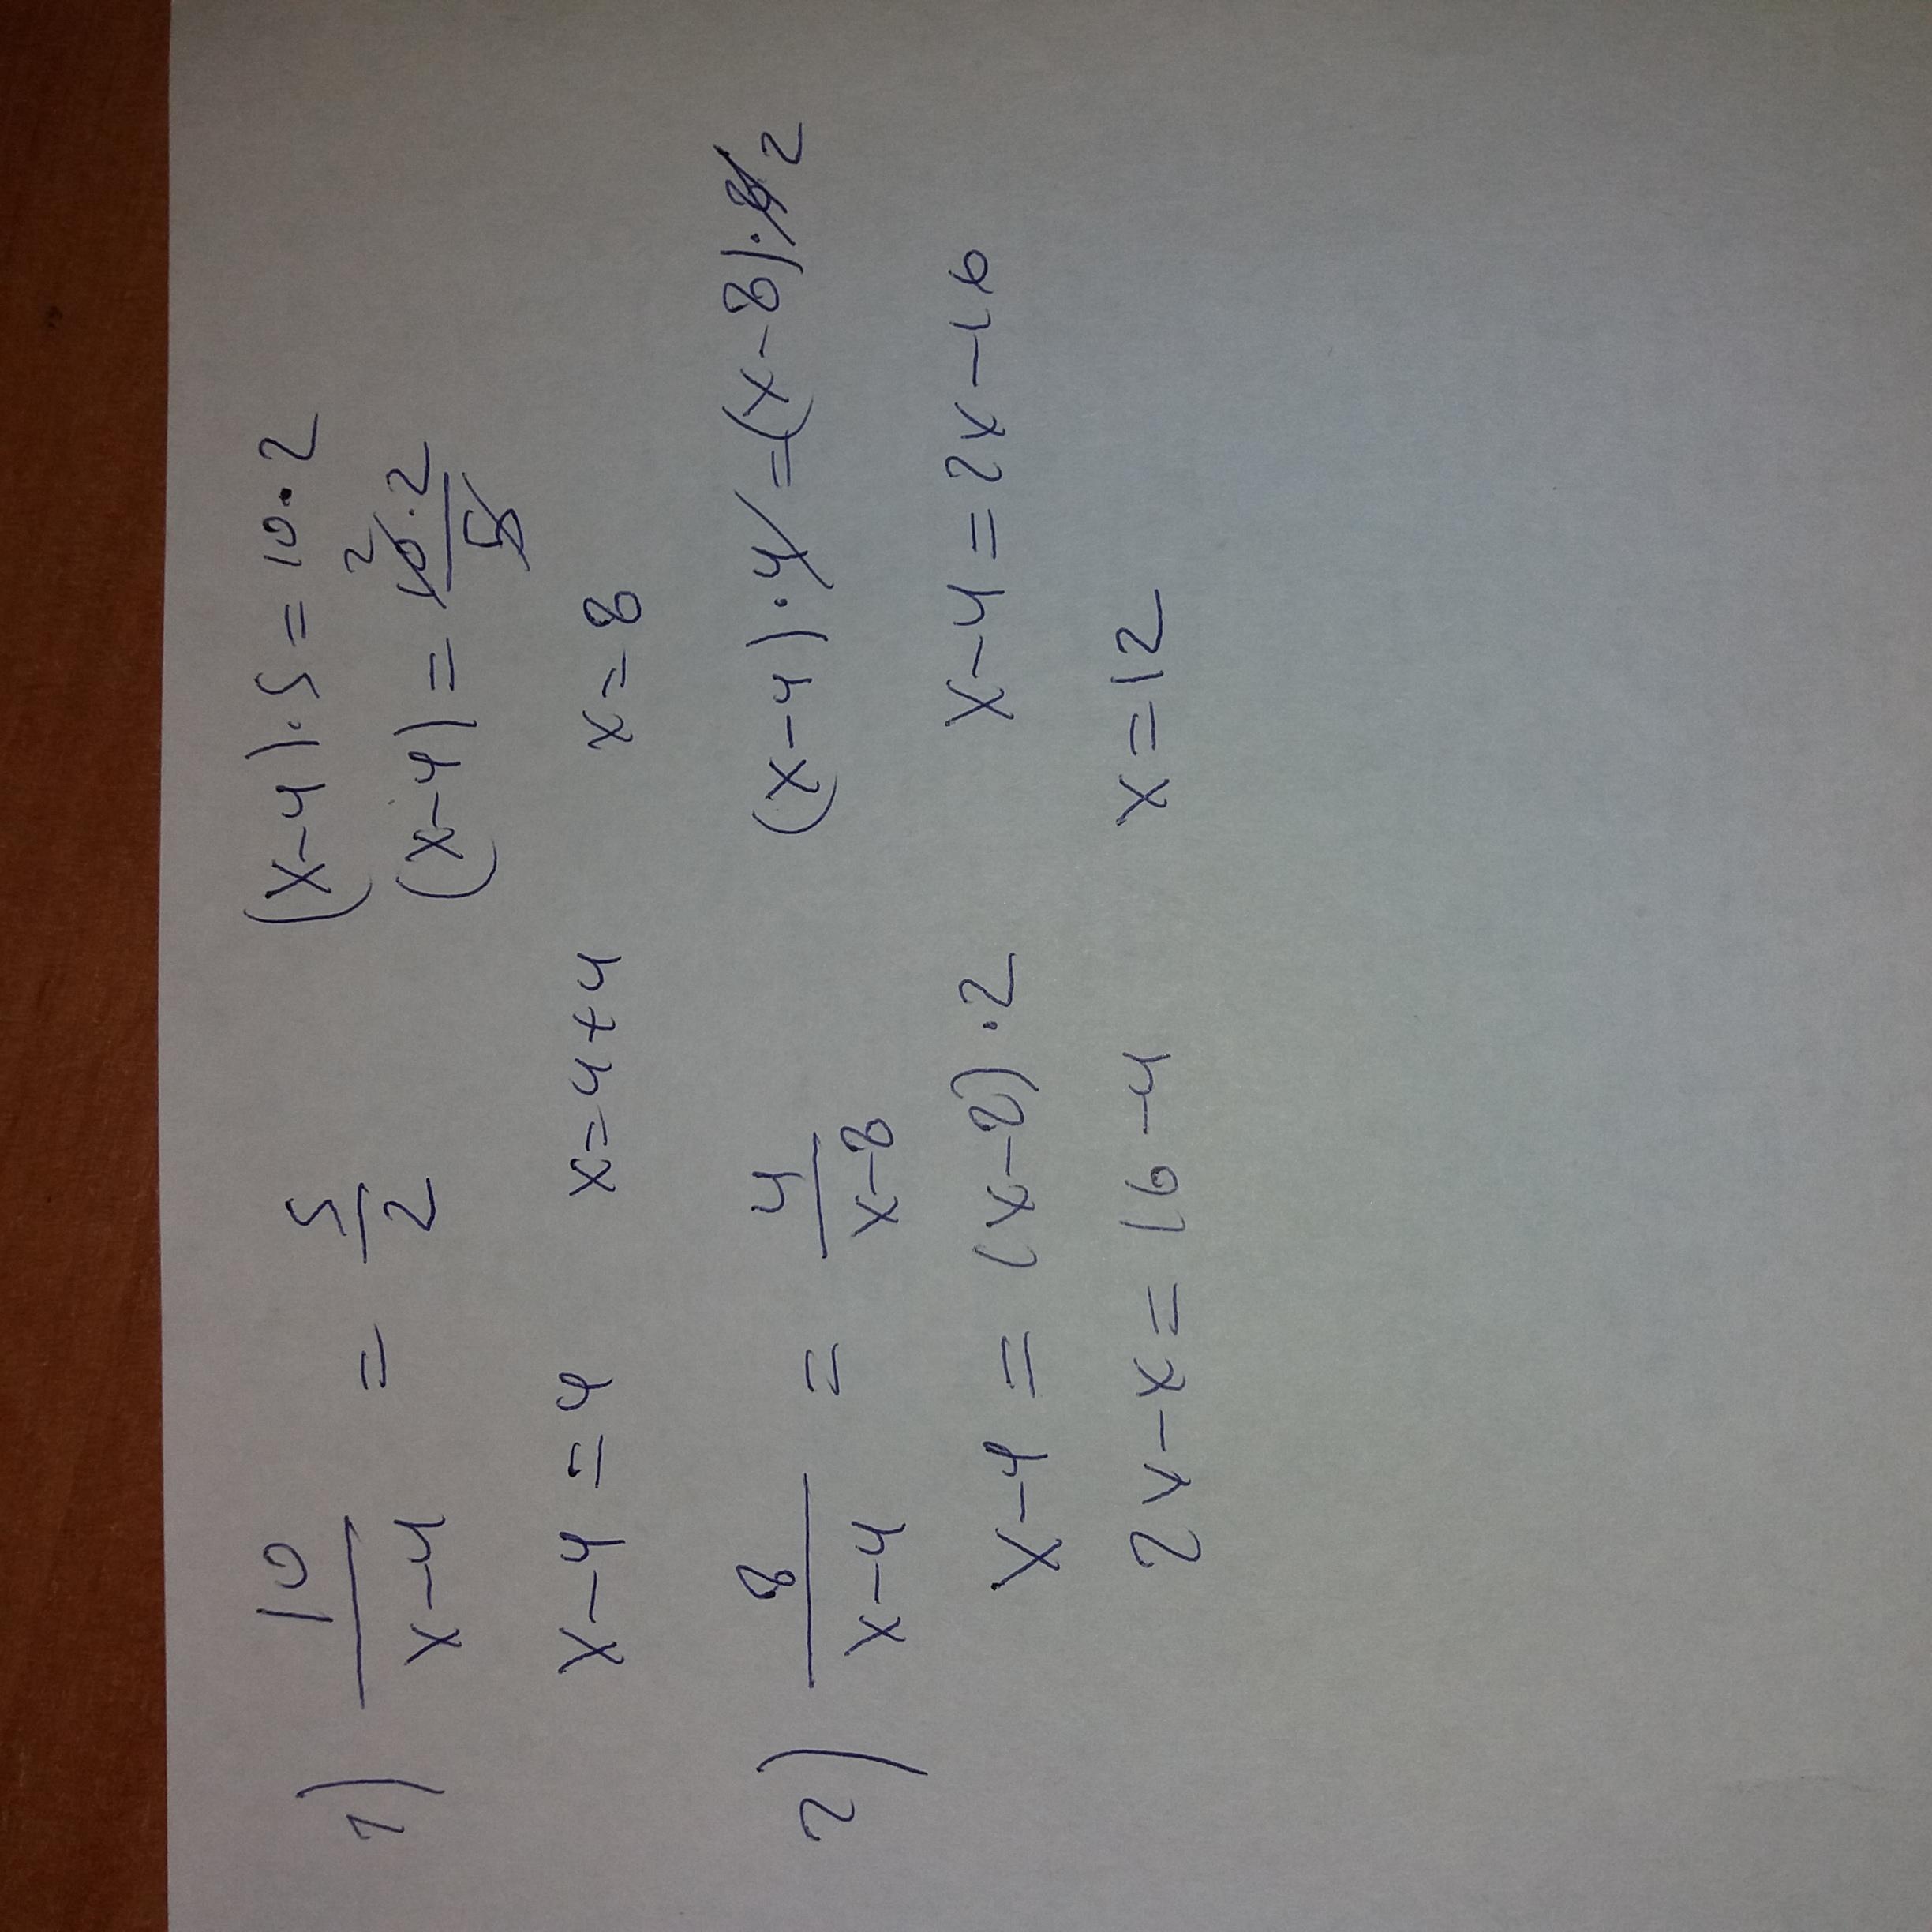 1) 10/(x-4) = 5/2 (x-4)·5=10·2
(x-4) = 10·2/5 2
x-4=4 x=4+4 x=8
2) 8/(x-4) = 4/(x-8) (x-4)·4=(x-8)·8 2
x-4 = (x-8)·2 x-4=2x-16
2x-x=16-4 x=12